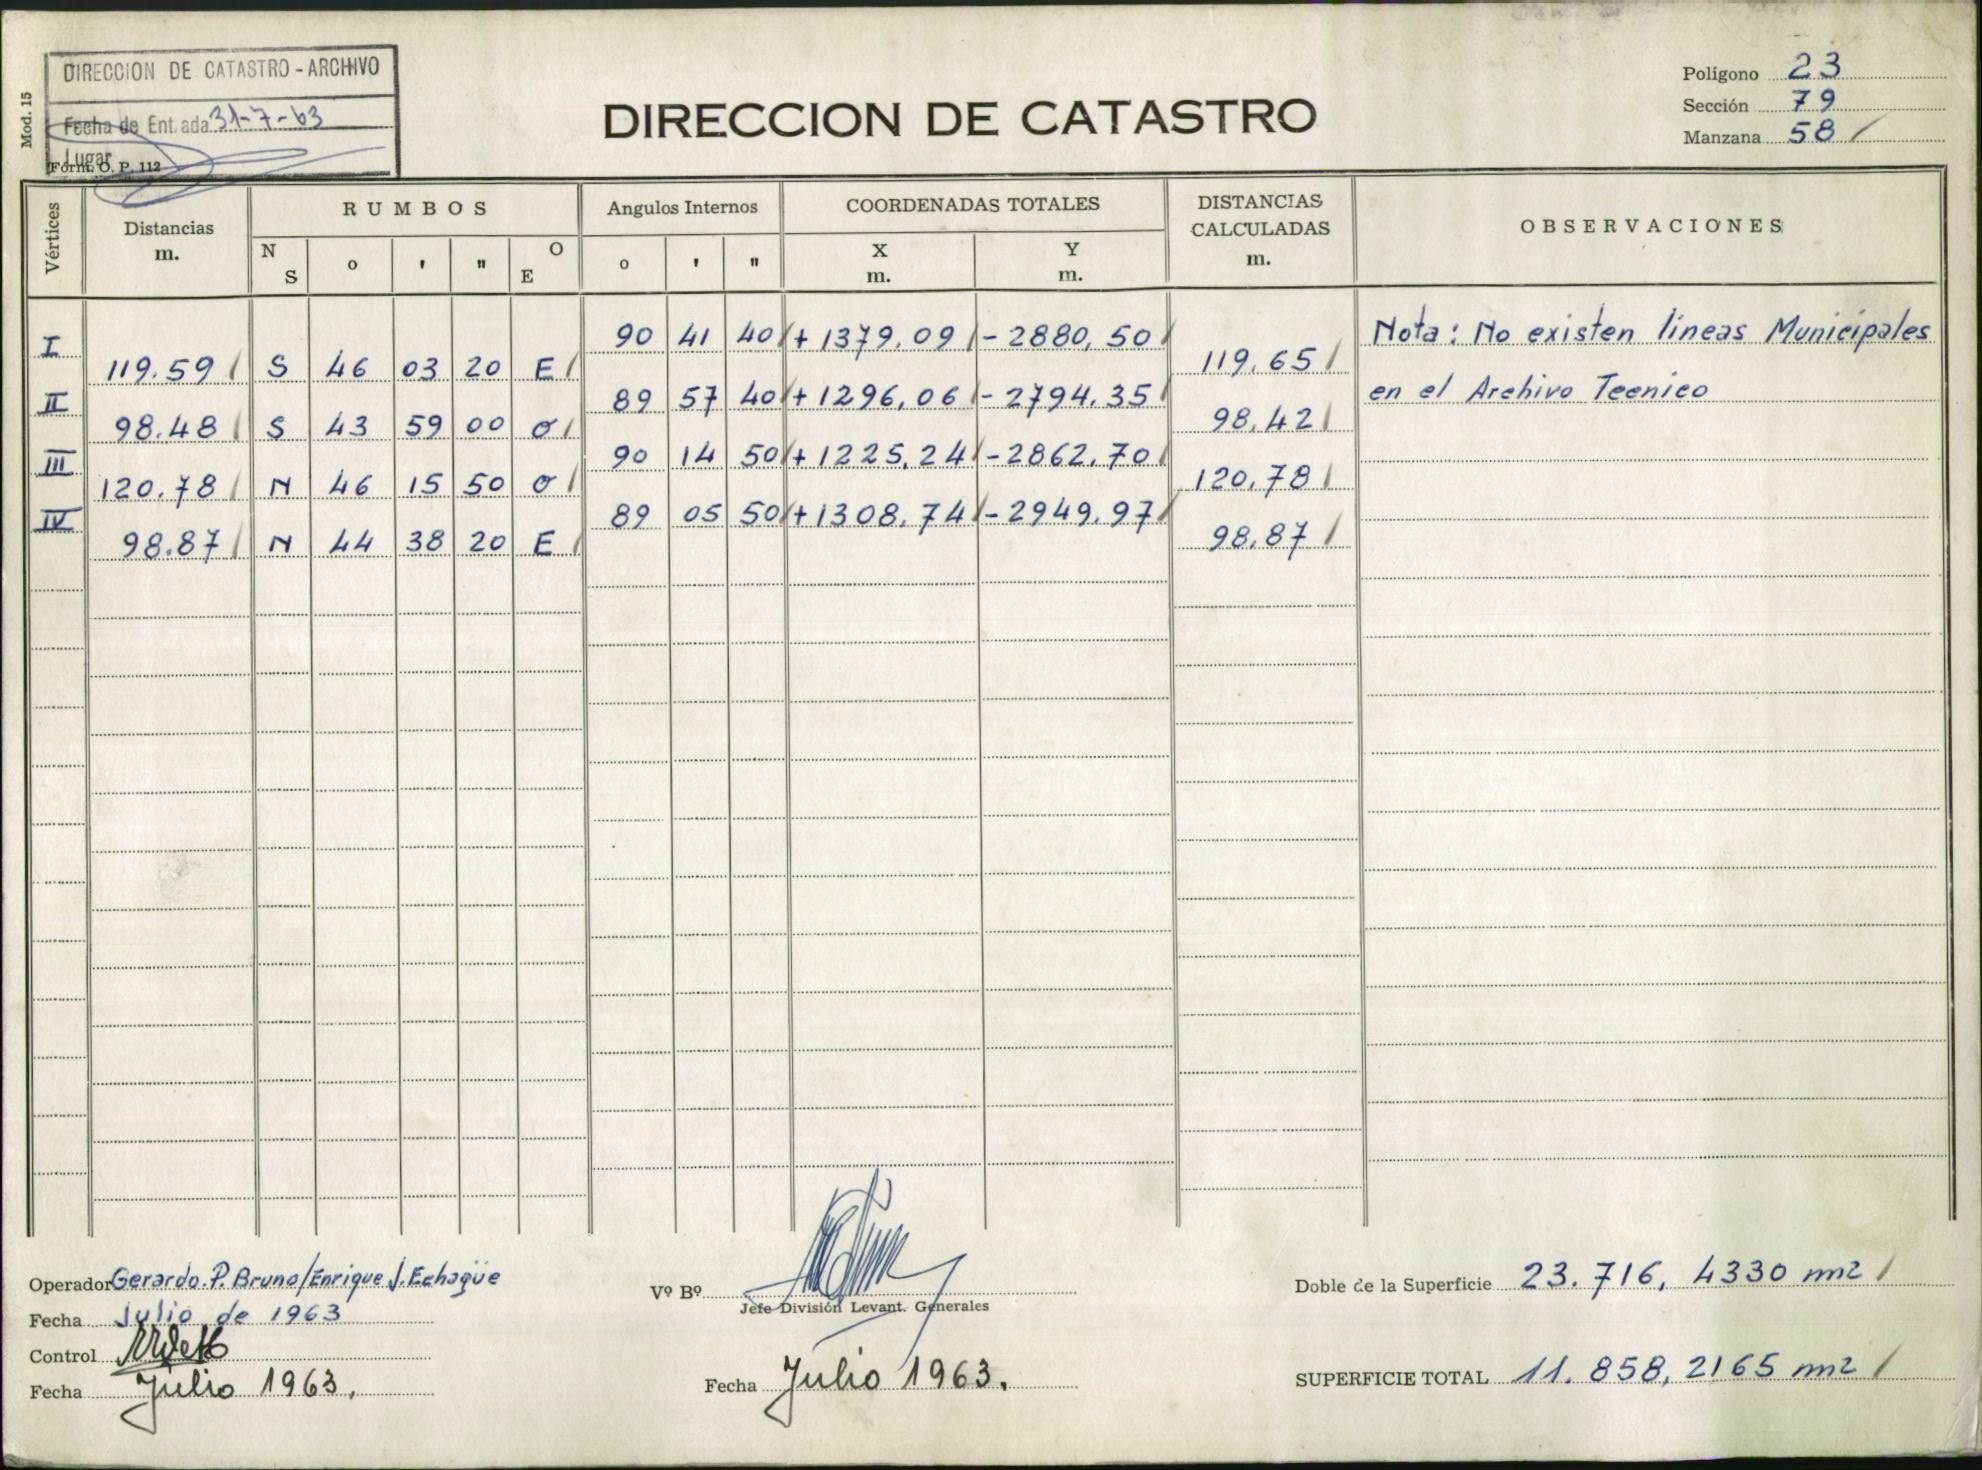 DIRECCION DE CATASTRO - ARCHIVO
Fecha de Entrada 31-7-63
Lugar
Mod. 15
Form. O. P. 112
DIRECCION DE CATASTRO
Polígono 23
Sección 79
Manzana 58 /
Vértices
Distancias m.
RUMBOS
N S o ' " O E
Angulos Internos
o ' "
COORDENADAS TOTALES
X m. Y m.
DISTANCIAS CALCULADAS m.
OBSERVACIONES
I 90 41 40 / + 1379,09 / - 2880,50 /
119.59 / S 46 03 20 E / 119,65 /
II 89 57 40 / + 1296,06 / - 2794,35 /
98.48 / S 43 59 00 O / 98,42 /
III 90 14 50 / + 1225,24 / - 2862,70 /
120.78 / N 46 15 50 O / 120,78 /
IV 89 05 50 / + 1308,74 / - 2949,97 /
98.87 / N 44 38 20 E / 98,87 /
Nota: No existen líneas Municipales
en el Archivo Tecnico
Operador Gerardo. P. Bruno/Enrique J. Echagüe
Fecha Julio de 1963
Control
Fecha Julio 1963.
Vº Bº
Jefe División Levant. Generales
Fecha Julio 1963.
Doble de la Superficie 23.716, 4330 m2 /
SUPERFICIE TOTAL 11.858, 2165 m2 /